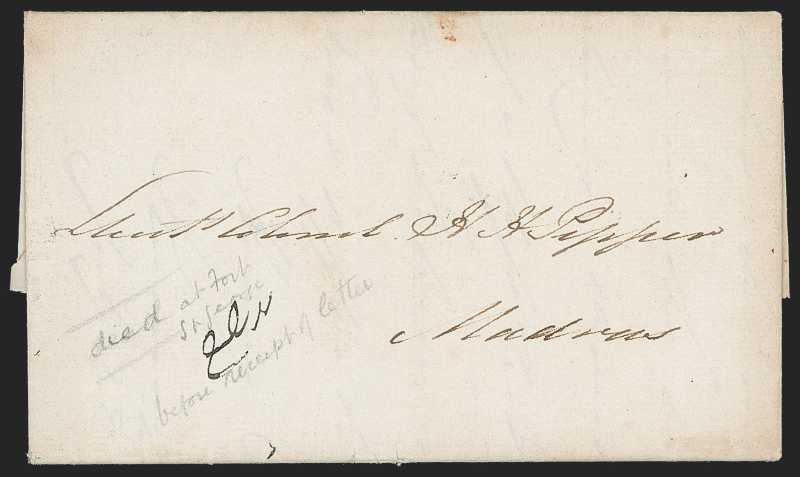 Lieut. Colonel H H Pepper
Madras
died at Fort
St George
before receipt of letter